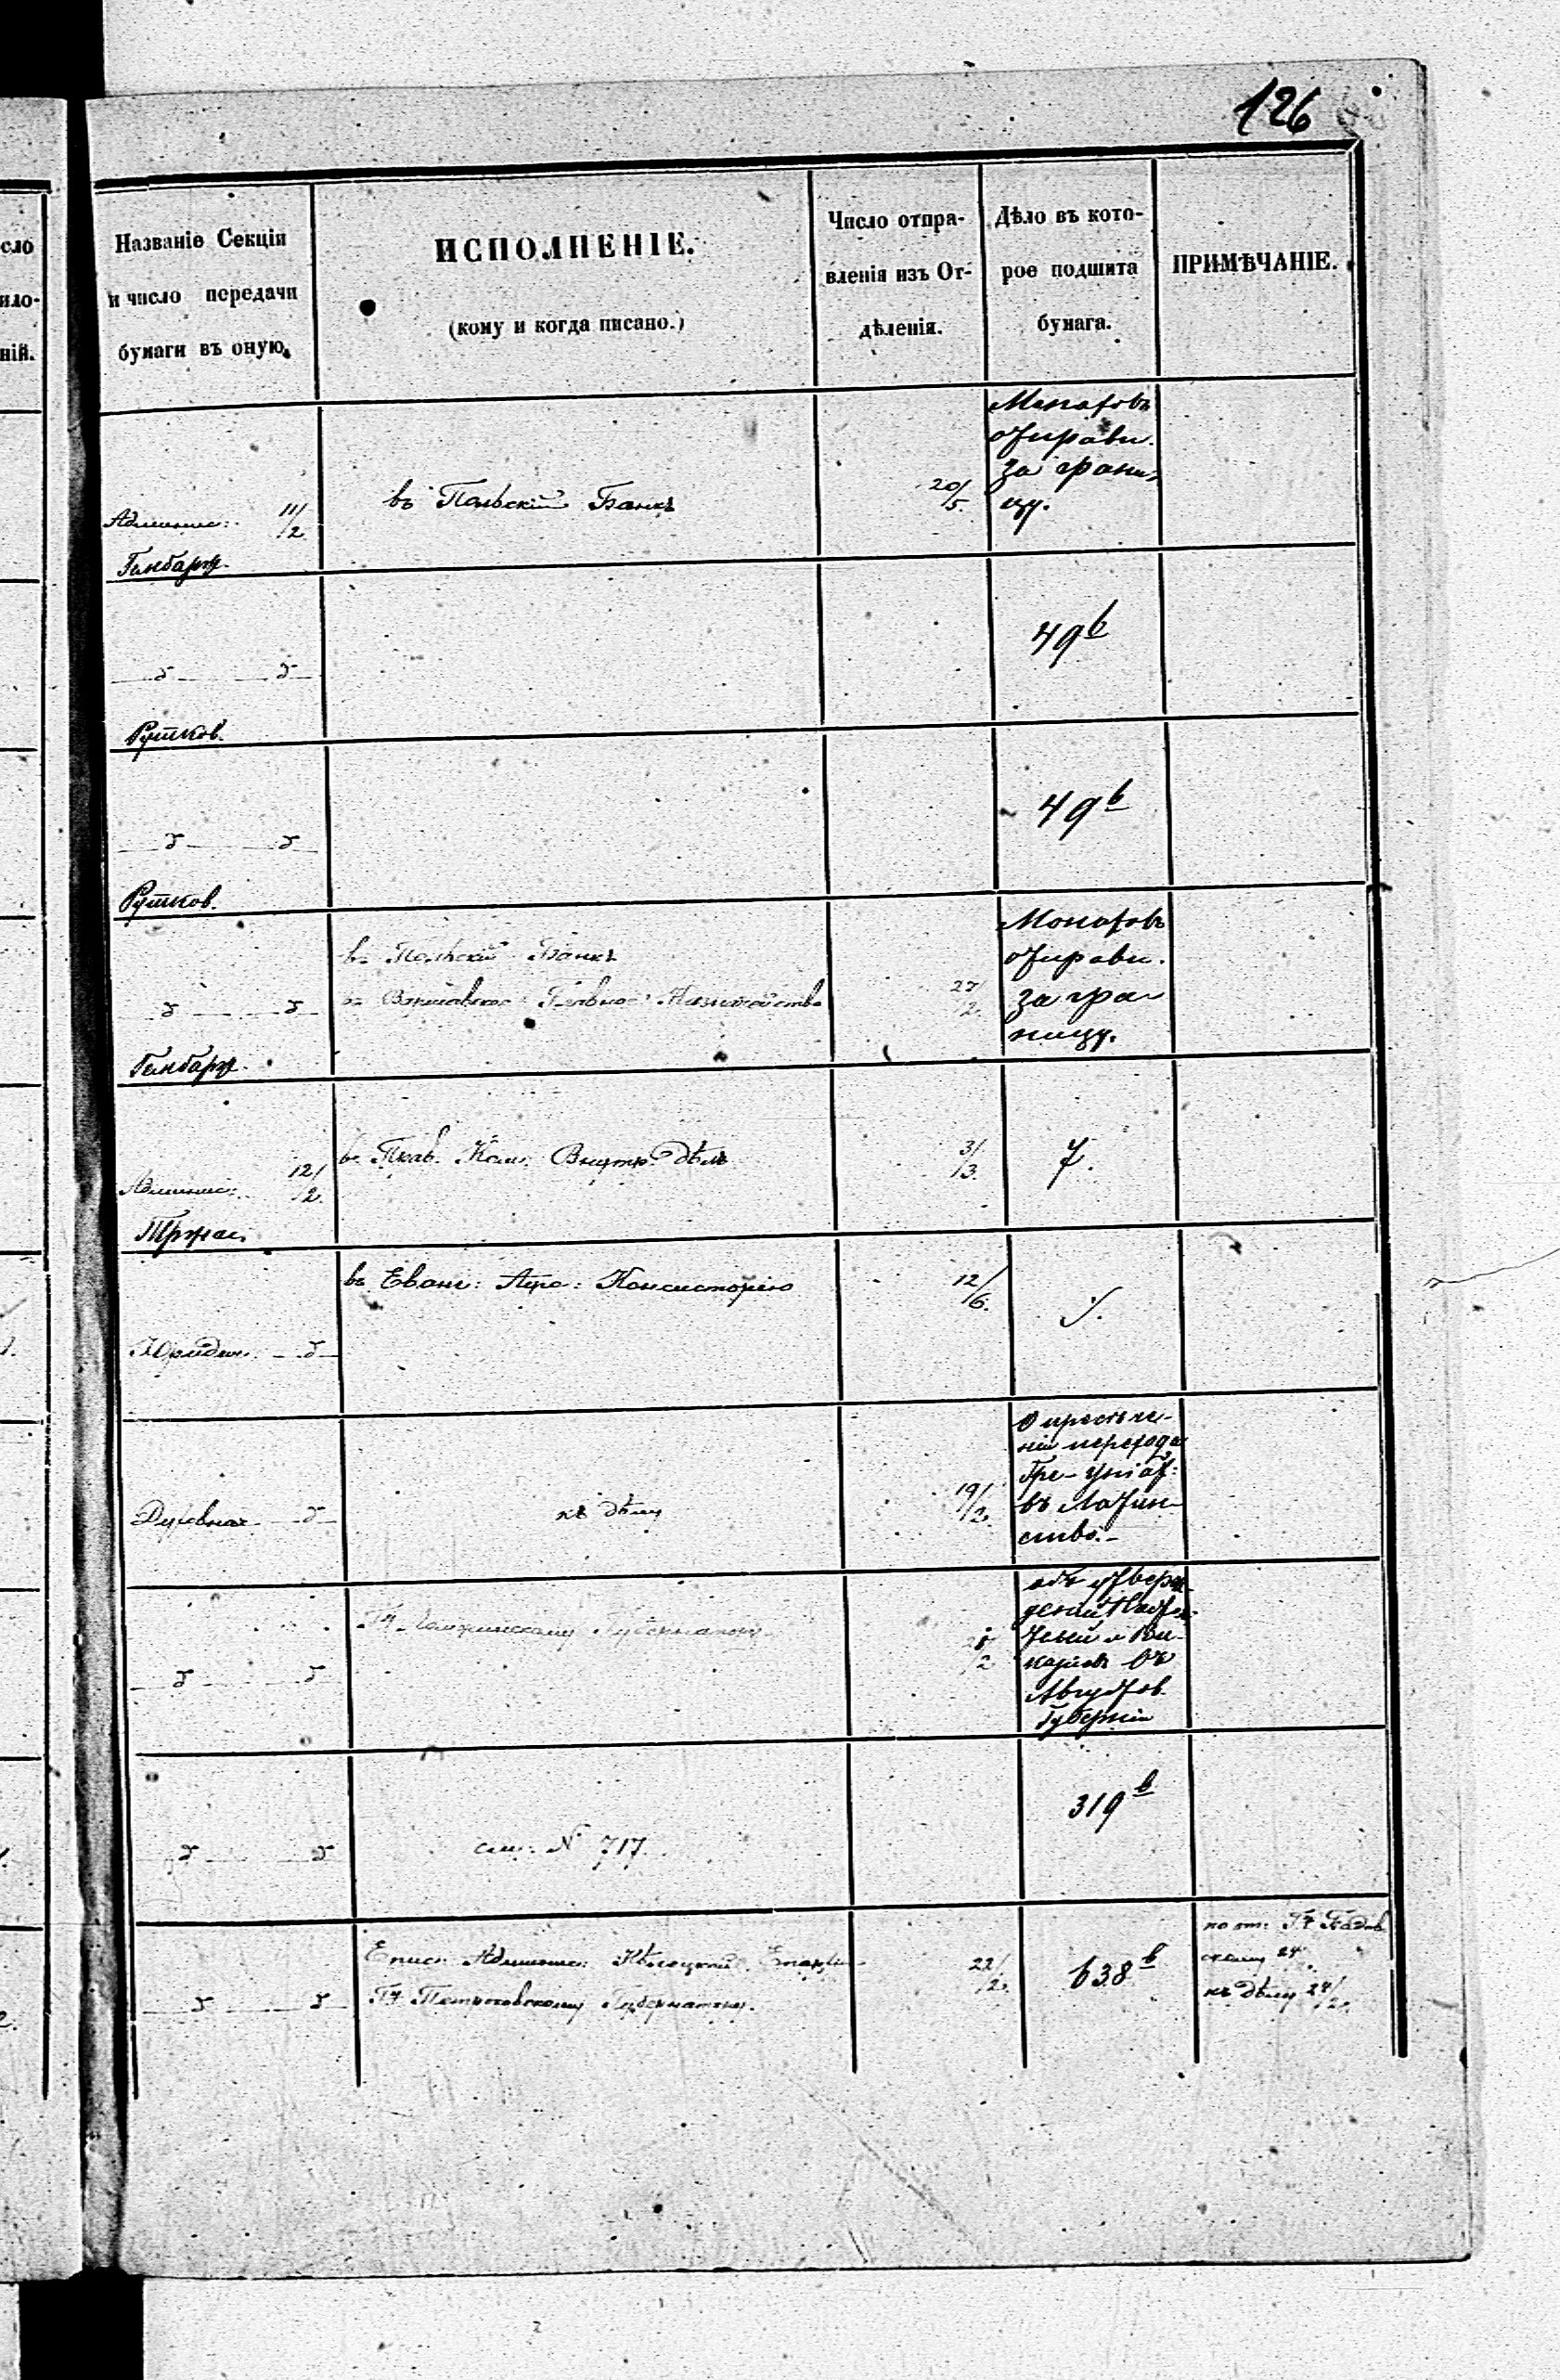 126
Названіе Секціи
и число передачи
бумаги въ оную.
ИСПОЛНЕНІЕ.
(кому и когда писано.)
Число отпра-
вленія изъ От-
дѣленія.
Дѣло въ кото-
рое подшита
бумага.
ПРИМѢЧАНІЕ.
Админис: 11/2
Гинбарт.
въ Польскій Банкъ
20/5.
Монаховъ
отправл.
за грани-
цу.
Рутков.
49 b
Рутков.
49 b
Гинбарт.
въ Польскій Банкъ
въ Варшавское Главное Казначейство
27/2.
Монаховъ
отправл.
за гра-
ницу.
Админис: 12/2.
въ Прав. Ком. Внутр. Дѣлъ
3/3.
7.
Юридич.
въ Еванг: Аугс: Консисторію
12/6.
Духовная
къ дѣлу
19/2.
О пресѣче-
ніи перехода
Гре-Уніат:
въ Латин-
ство.-
Гу Ломжинскому Губернатору.
/2
объ утверж-
деніи Настоя-
телей и Ви-
каріевъ въ
Августов.
Губерніи
см: N 717.
319 b
Еписк. Админис: Кѣлецкой Епархіи
Гу Петроковскому Губернатору.
22/2.
638 b
скому 24
къ дѣлу 24/2.